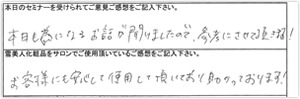 本日のセミナーを受けられてご意見ご感想をご記入下さい。
本日も為になるお話が聞けましたので、参考にさせて頂きます!
雪美人化粧品をサロンでご使用頂いているご感想をご記入下さい。
お客様にも安心して使用して頂いており助かっております!